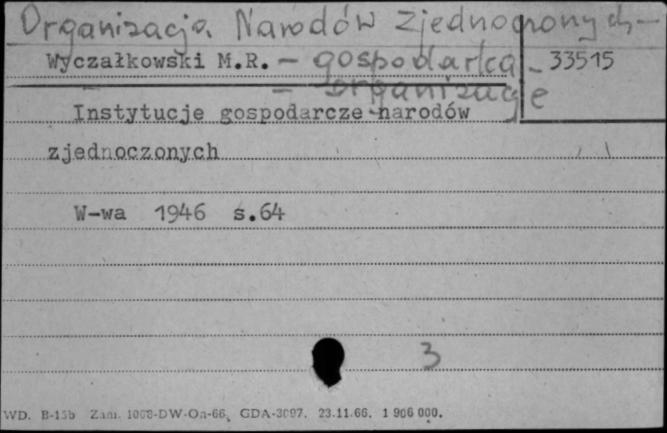 Organizacja Narodów Zjednoczonych -
Wyczałkowski M.R. - gospodarka - 33515
- organizacje
Instytucje gospodarcze narodów
zjednoczonych
W-wa 1946 s.64
3
WD. B-15b Zam. 1068-DW-On-66, GDA-3097. 23.11.66. 1 906 000.